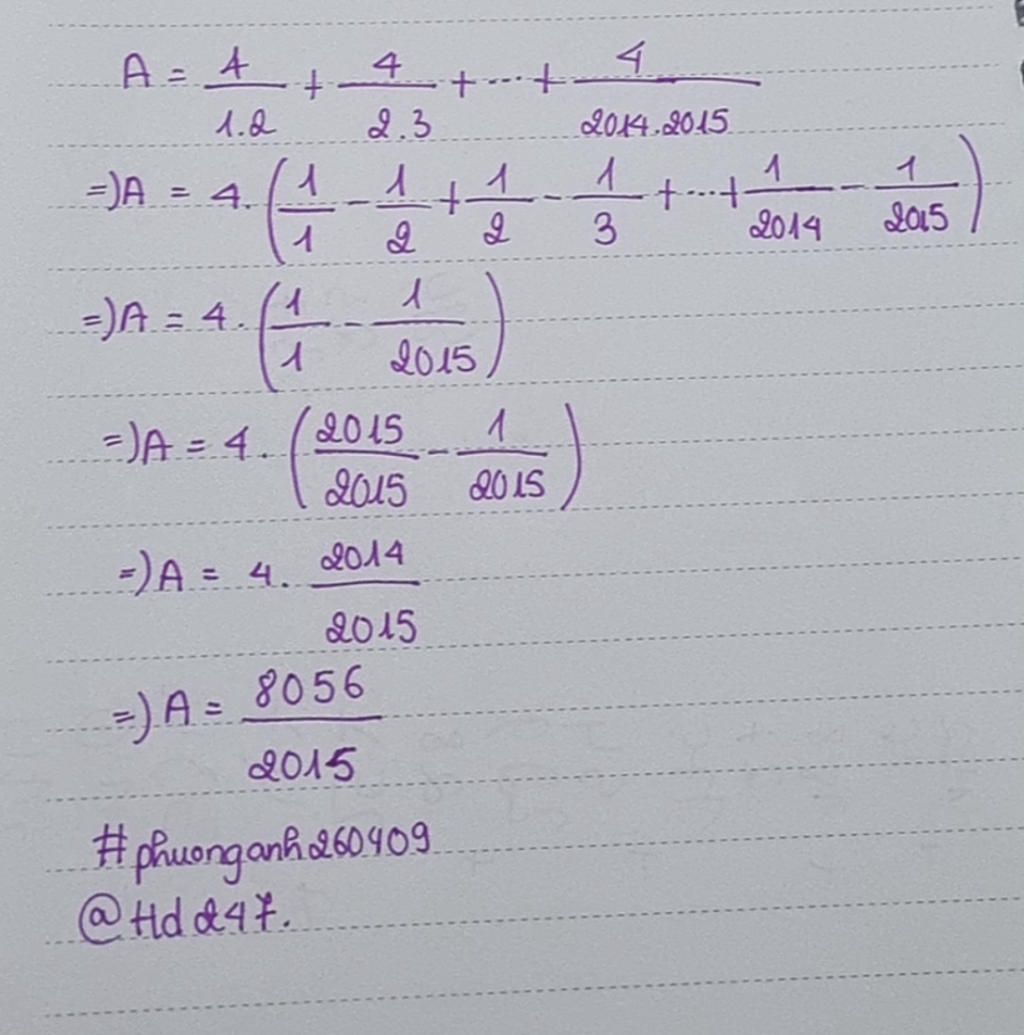 A = 4/1.2 + 4/2.3 + ... + 4/2014.2015
=) A = 4. (1/1 - 1/2 + 1/2 - 1/3 + ... + 1/2014 - 1/2015)
=) A = 4. (1/1 - 1/2015)
=) A = 4. (2015/2015 - 1/2015)
=) A = 4. 2014/2015
=) A = 8056/2015
#phuonganh260409
@Hd247.